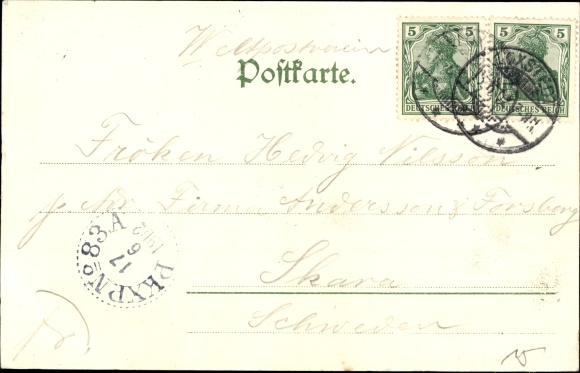 Weltpostverein
Postkarte.
5 5
DEUTSCHES REICH DEUTSCHES REICH
Fröken Hedvig Nilsson
Firma Anderson & Forsberg
Skara
Schweden
PKXP. No 83A
17
6
1902